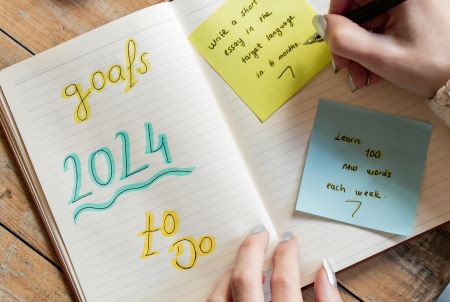 goals
2024
to
Do
Write a short
essay in the
target language
in 6 months.
Learn 100
new words
each week.